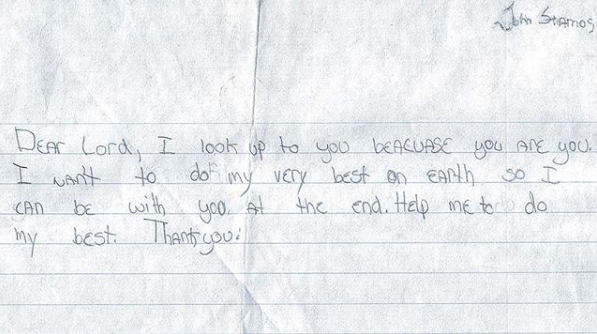 John Stamos
DEAR Lord, I look up to you bEACUASE you ARE you.
I wANt to do my very best on EARth so I
CAN be with you. At the end. Help me to do
my best. Thankyou!